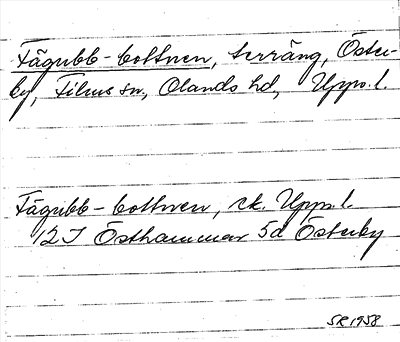 Fägubb-bottnen, terräng, Öster-
by, Films sn, Olands hd, Upps. l.
Fägubb-bottnen, ek. Upps. l.
12I Östhammar 5d Österby
SR 1958